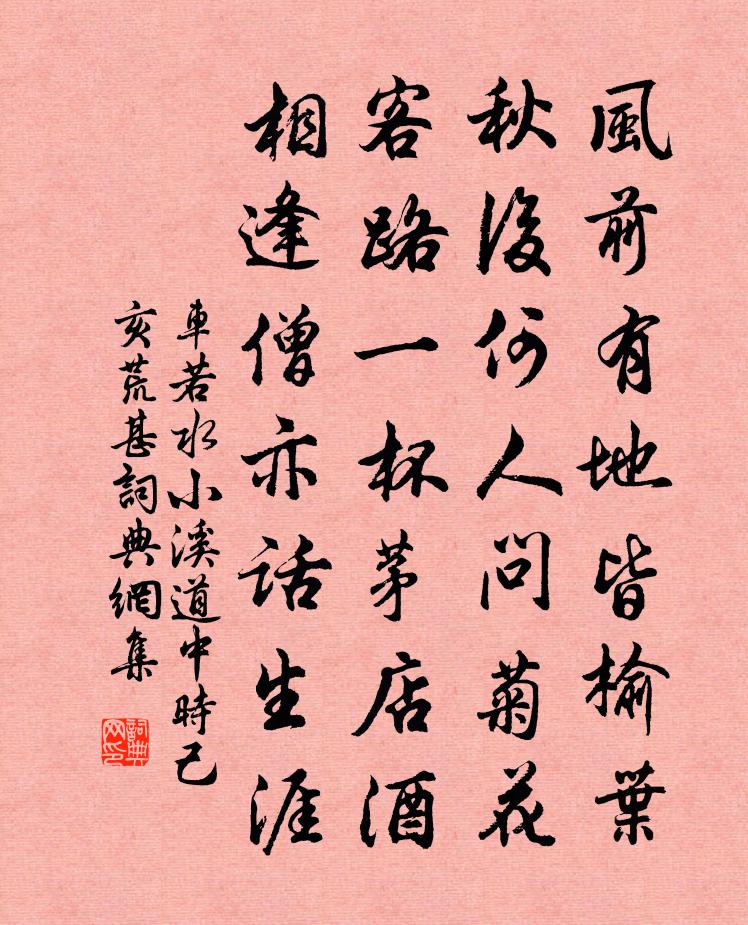 風前有地皆榆葉
秋後何人問菊花
客路一杯茅店酒
相逢僧亦話生涯
車若水小溪道中時己
亥荒甚詞典網集
詞典
网印